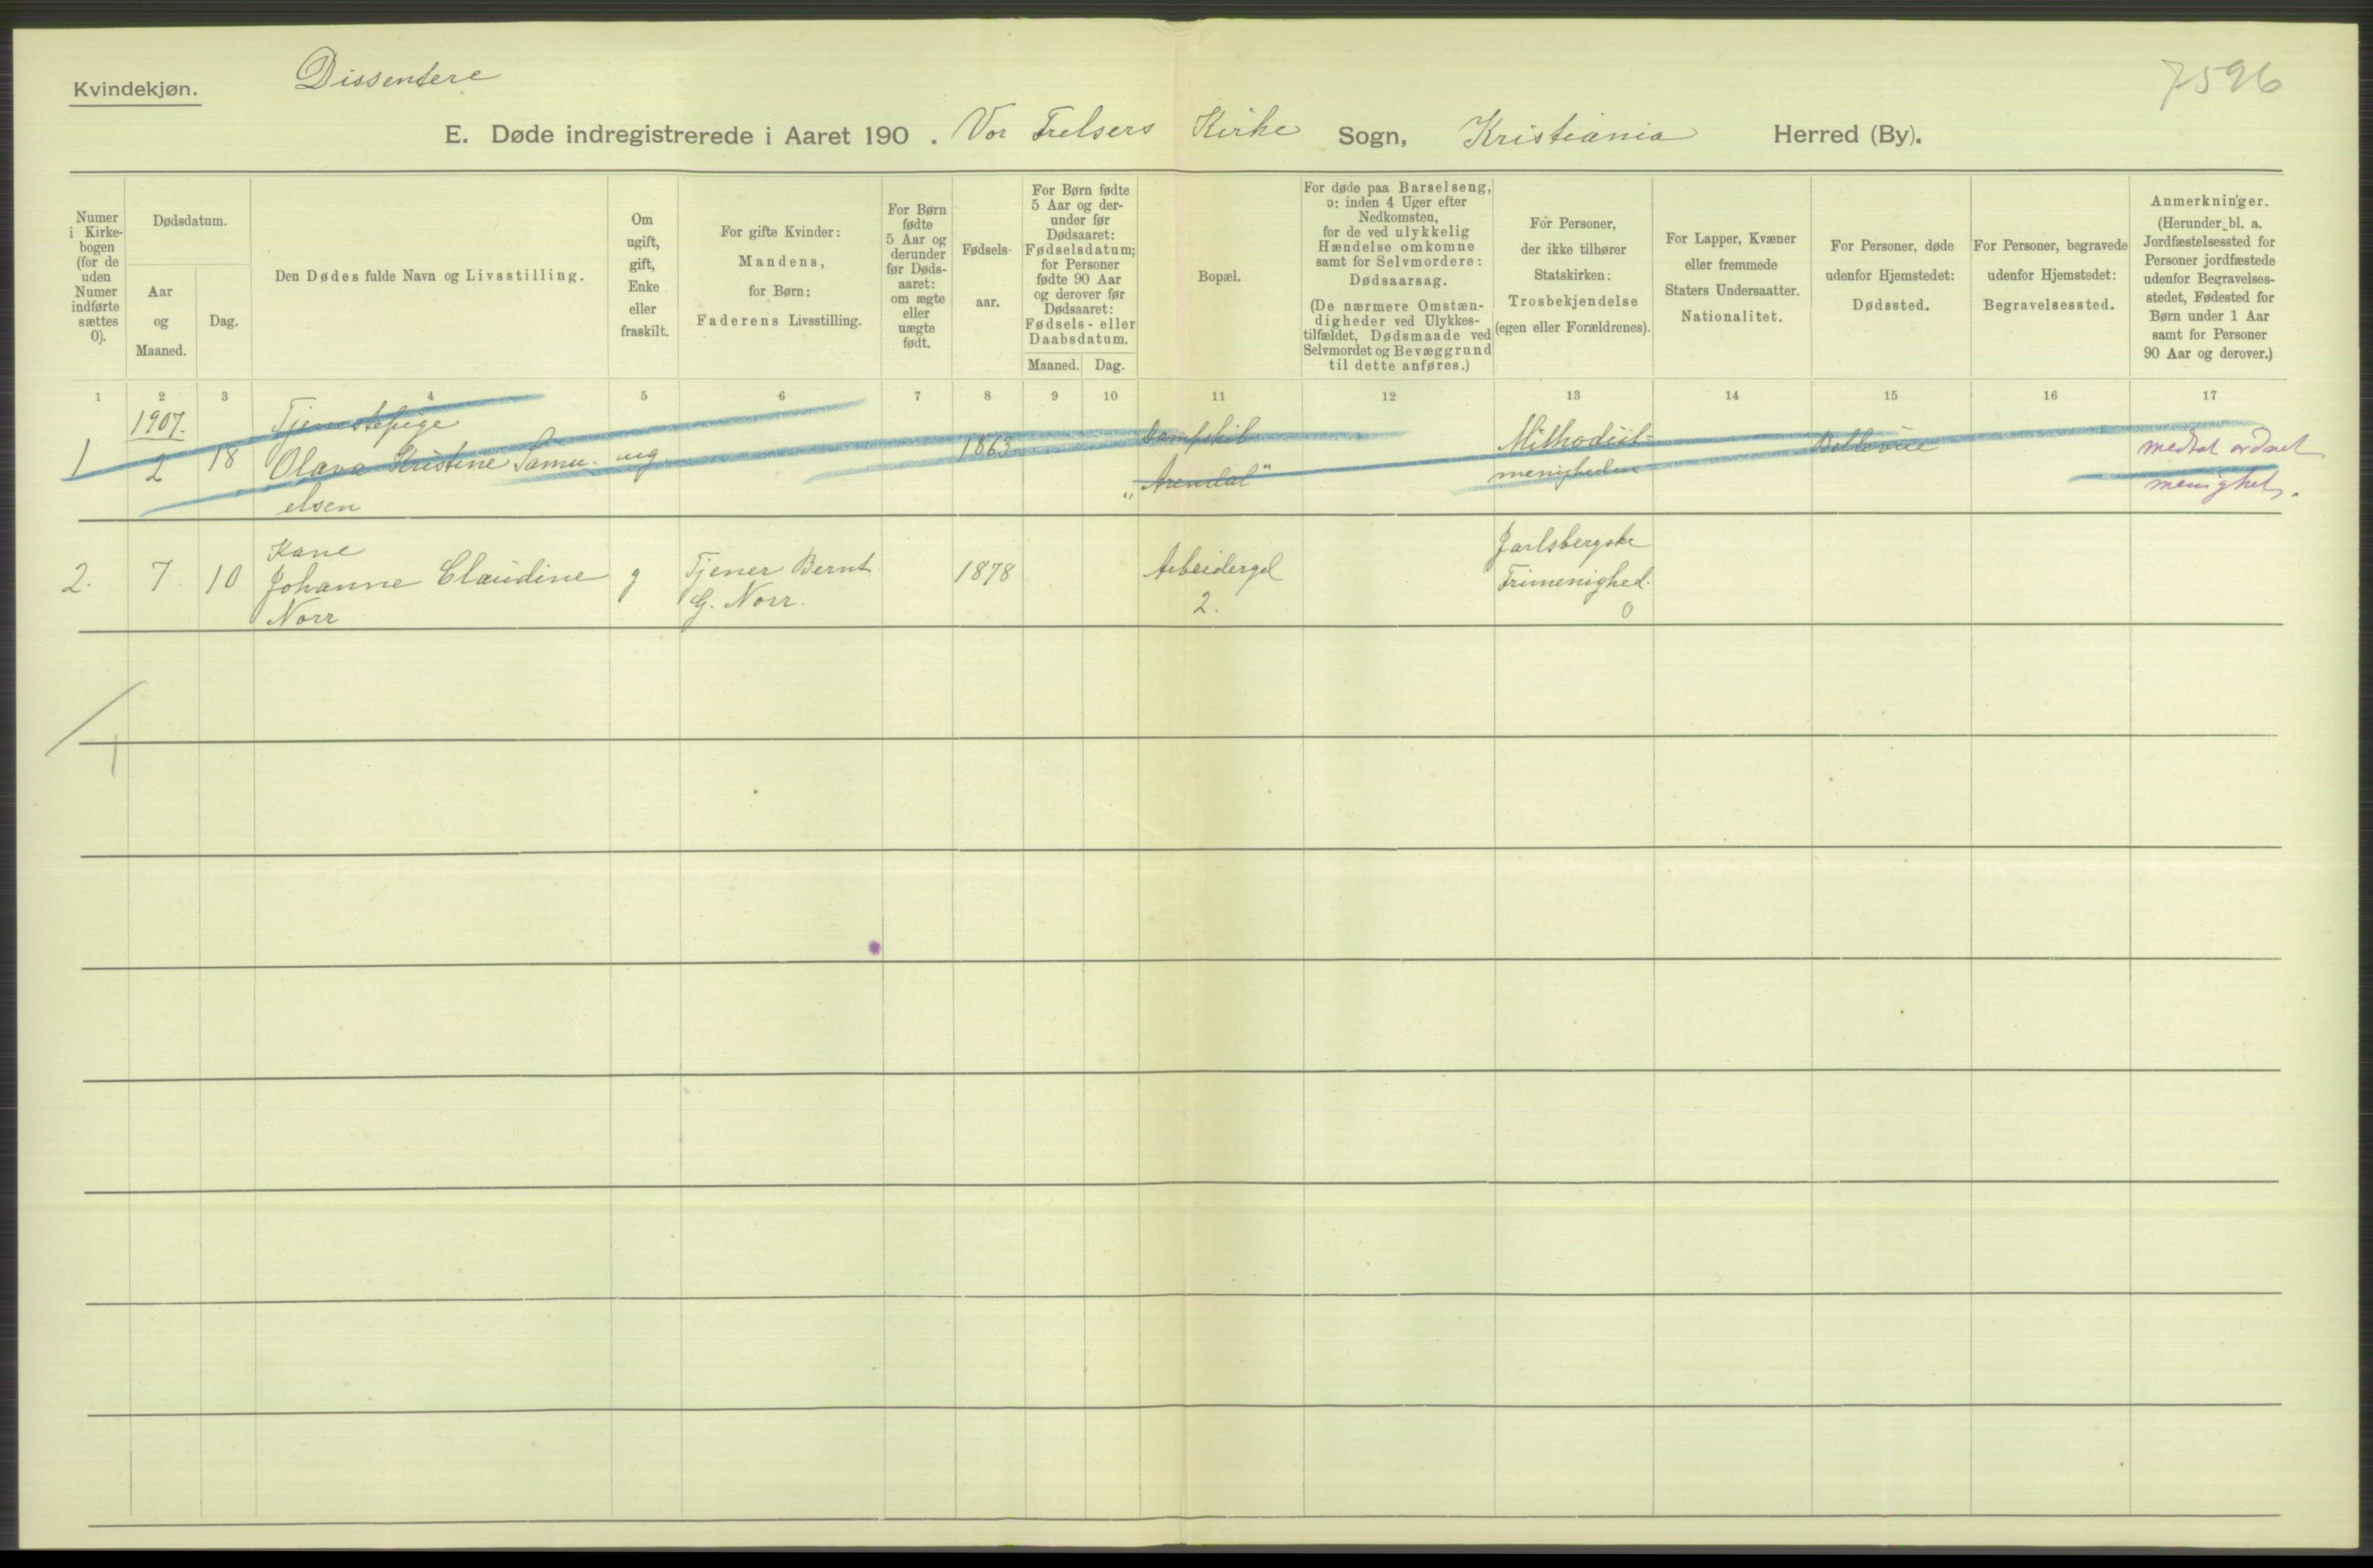 Kvindekjøn.
Dissentere
7596
E. Døde indregistrerede i Aaret 190 . Vor Frelsers Kirke Sogn, Kristiania Herred (By).
Numer
i Kirke-
bogen
(for de
uden
Numer
indførte
sættes
0).
Dødsdatum.
Aar
og
Maaned.
Dag.
Den Dødes fulde Navn og Livsstilling.
Om
ugift,
gift,
Enke
eller
fraskilt.
For gifte Kvinder:
Mandens,
for Børn:
Faderens Livsstilling.
For Børn
fødte
5 Aar og
derunder
før Døds-
aaret:
om ægte
eller
uægte
født.
Fødsels-
aar.
For Børn fødte
5 Aar og der-
under før
Dødsaaret:
Fødselsdatum;
for Personer
fødte 90 Aar
og derover før
Dødsaaret:
Fødsels- eller
Daabsdatum.
Maaned. Dag.
Bopæl.
For døde paa Barselseng,
ɔ: inden 4 Uger efter
Nedkomsten,
for de ved ulykkelig
Hændelse omkomne
samt for Selvmordere:
Dødsaarsag.
(De nærmere Omstæn-
digheder ved Ulykkes-
tilfældet, Dødsmaade ved
Selvmordet og Bevæggrund
til dette anføres.)
For Personer,
der ikke tilhører
Statskirken:
Trosbekjendelse
(egen eller Forældrenes).
For Lapper, Kvæner
eller fremmede
Staters Undersaatter.
Nationalitet.
For Personer, døde
udenfor Hjemstedet:
Dødssted.
For Personer, begravede
udenfor Hjemstedet:
Begravelsessted.
Anmerkninger.
(Herunder bl. a.
Jordfæstelsessted for
Personer jordfæstede
udenfor Begravelses-
stedet, Fødested for
Børn under 1 Aar
samt for Personer
90 Aar og derover.)
1 2 3 4 5 6 7 8 9 10 11 12 13 14 15 16 17
1907.
1 2 18
Tjenestepige
Olava Kristine Samu-
elsen
ug
1863
Dampskib
„Arendal"
Methodist-
menigheden
Bellevue
medtat ordnet
menighet.
2. 7 10
Kone
Johanne Claudine
Norr
g
Tjener Bernt
G. Norr.
1878
Arbeidergd
2.
Jarlsbergske
Frimenighed.
0